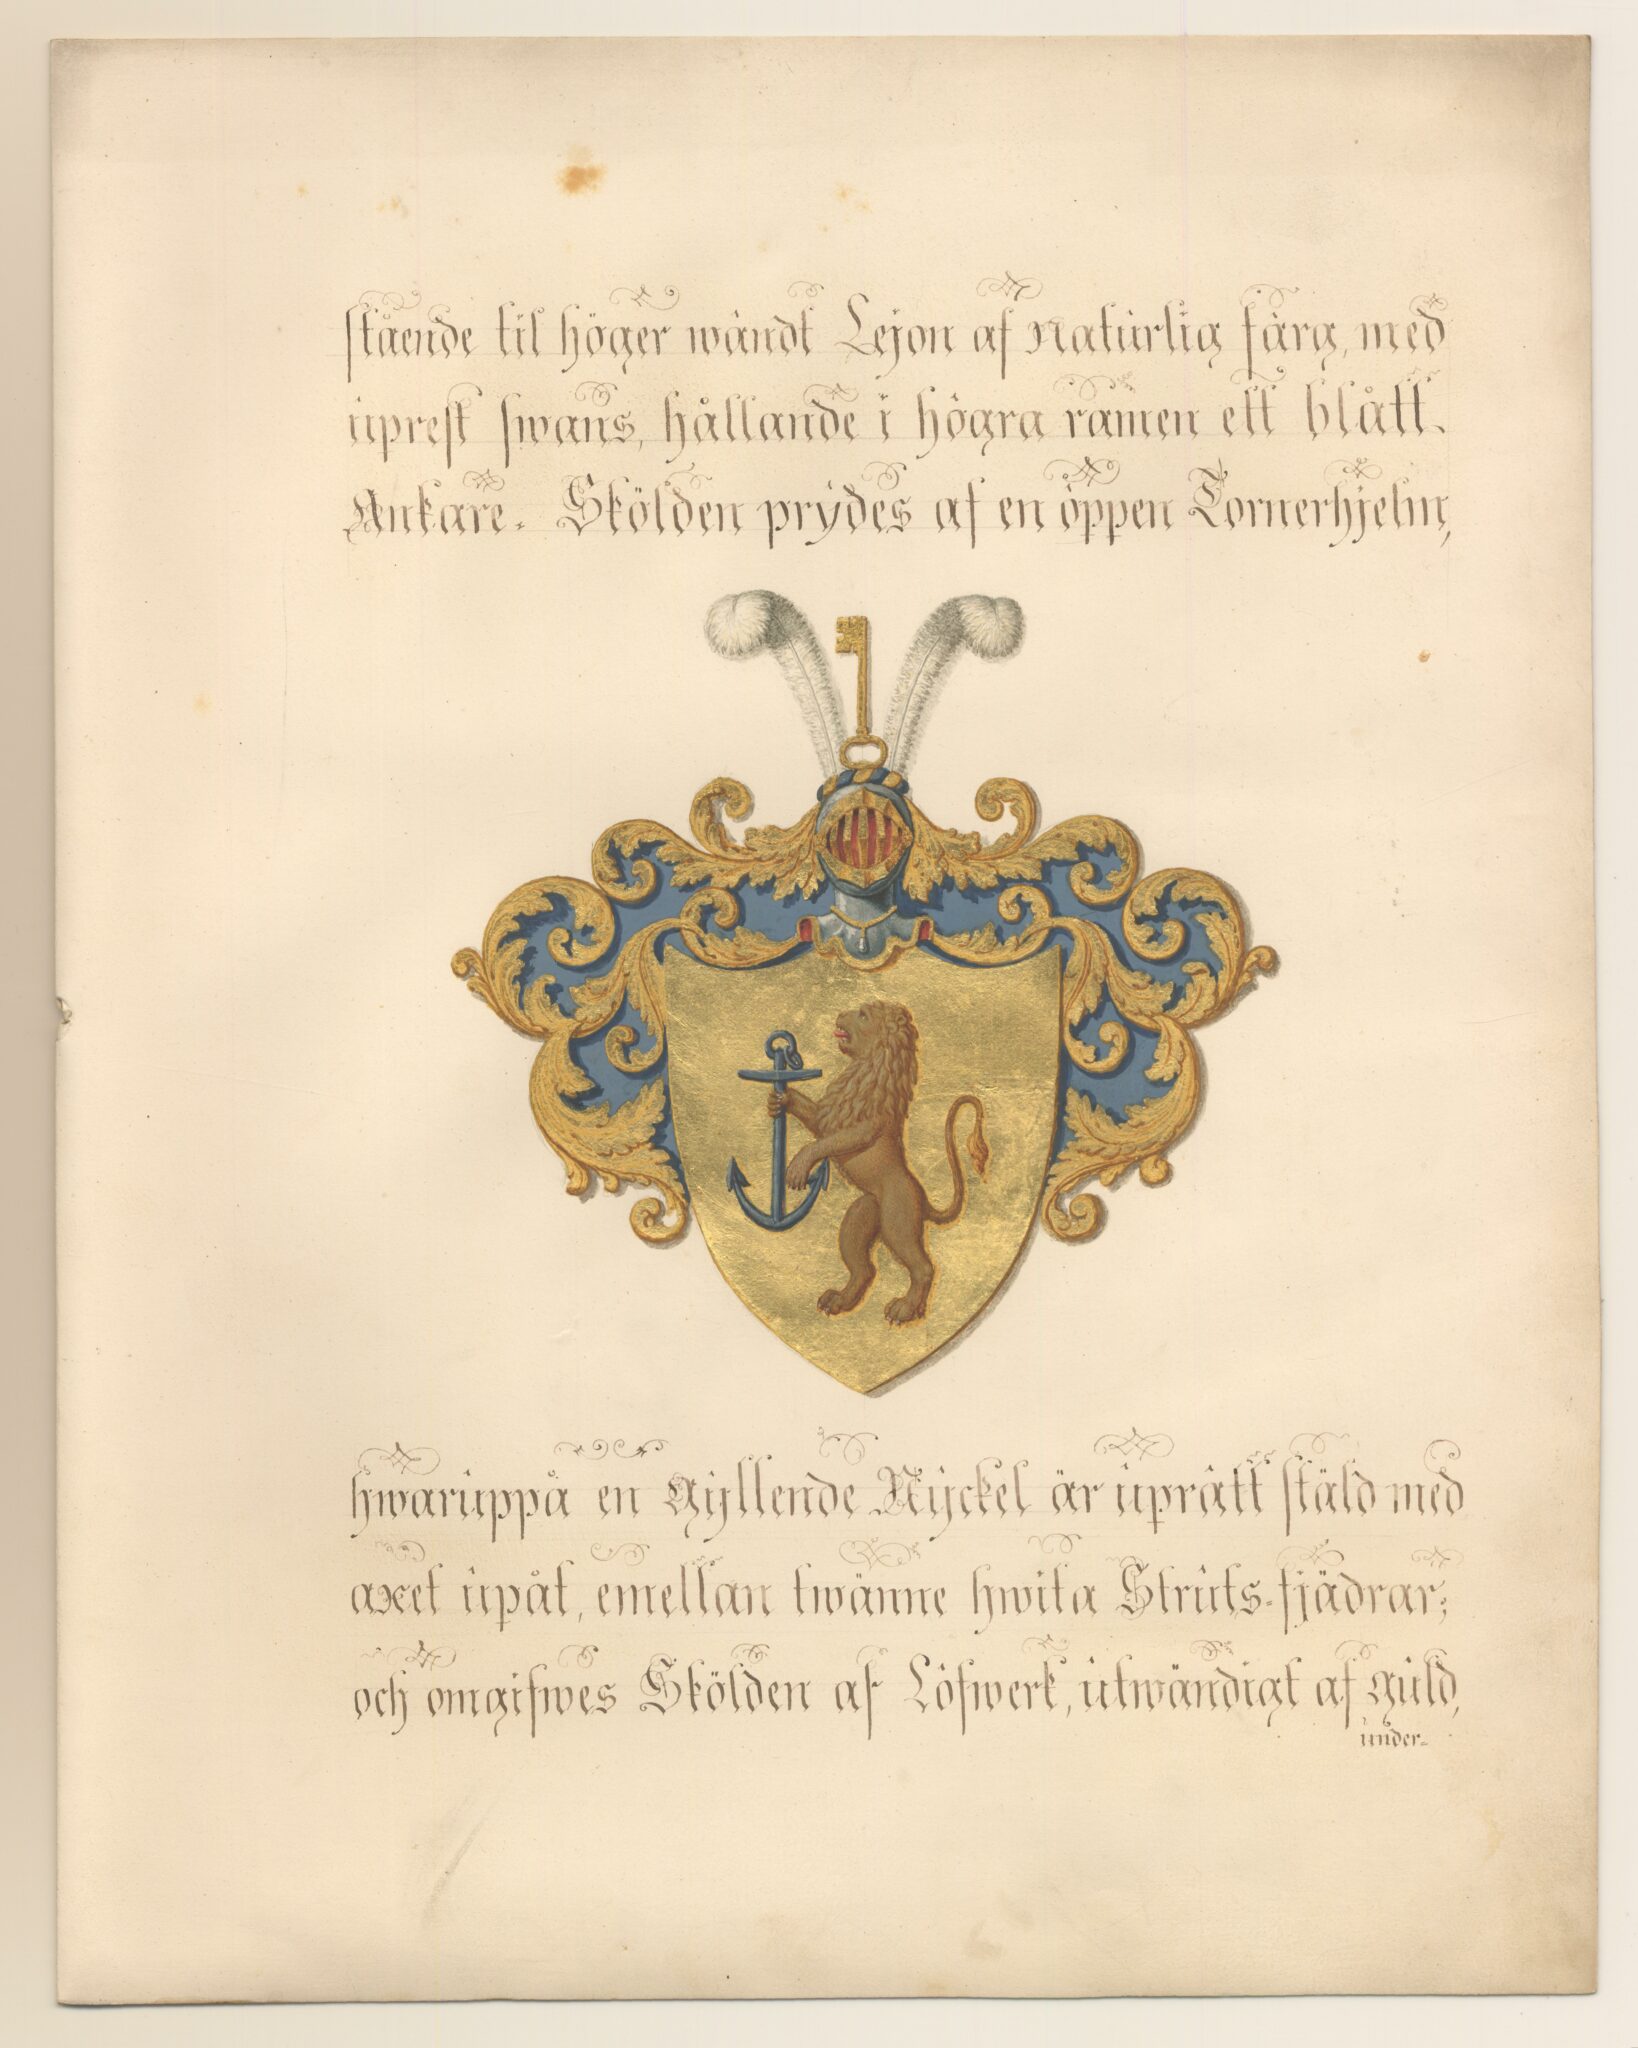 stående til höger wändt Lejon af Naturlig färg, med
uprest swans, hållande i högra ramen ett blått
Ankare. Skölden prydes af en öppen Tornerhjelm,
hwaruppå en Gyllende Nyckel är uprätt stäld med
axet upåt, emellan twänne hwita Struts-fjädrar;
och omgifwes Skölden af Löfwerk, utwändigt af guld,
under-